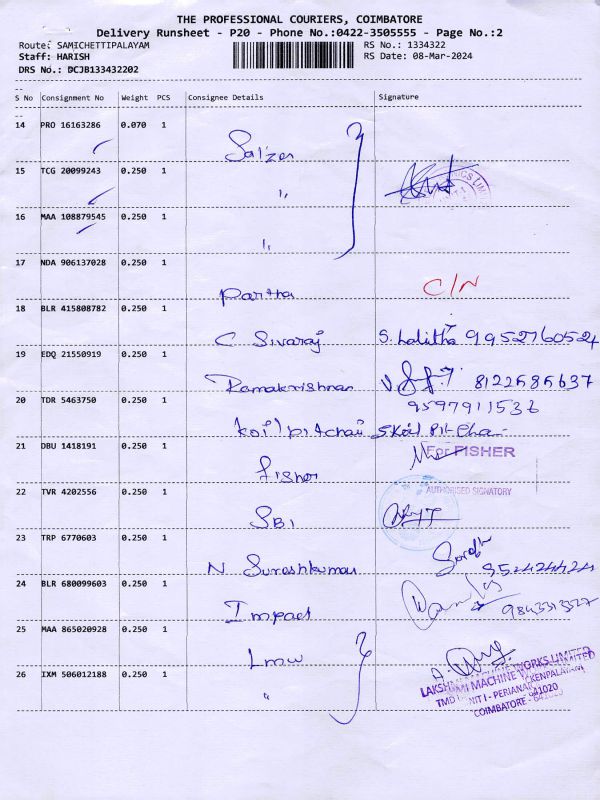 THE PROFESSIONAL COURIERS, COIMBATORE
Delivery Runsheet - P20 - Phone No.:0422-3505555 - Page No.:2
Route: SAMICHETTIPALAYAM RS No.: 1334322
Staff: HARISH RS Date: 08-Mar-2024
DRS No.: DCJB133432202
S No Consignment No Weight PCS Consignee Details Signature
14 PRO 16163286 0.070 1 Salzer
15 TCG 20099243 0.250 1 "
16 MAA 108879545 0.250 1 "
17 NDA 906137028 0.250 1 Partha C/N
18 BLR 415808782 0.250 1 C. Sivaraj S. Lalitha 9952760524
19 EDQ 21550919 0.250 1 Ramakrishnan 8122585637
20 TDR 5463750 0.250 1 koilpitchai 9597911536
21 DBU 1418191 0.250 1 fisher For FISHER
AUTHORISED SIGNATORY
22 TVR 4202556 0.250 1 SBI
23 TRP 6770603 0.250 1 N Sureshkumar
24 BLR 680099603 0.250 1 Impact
25 MAA 865020928 0.250 1 Lmw
26 IXM 506012188 0.250 1 "
LAKSHMI MACHINE WORKS LIMITED
COIMBATORE - 641020